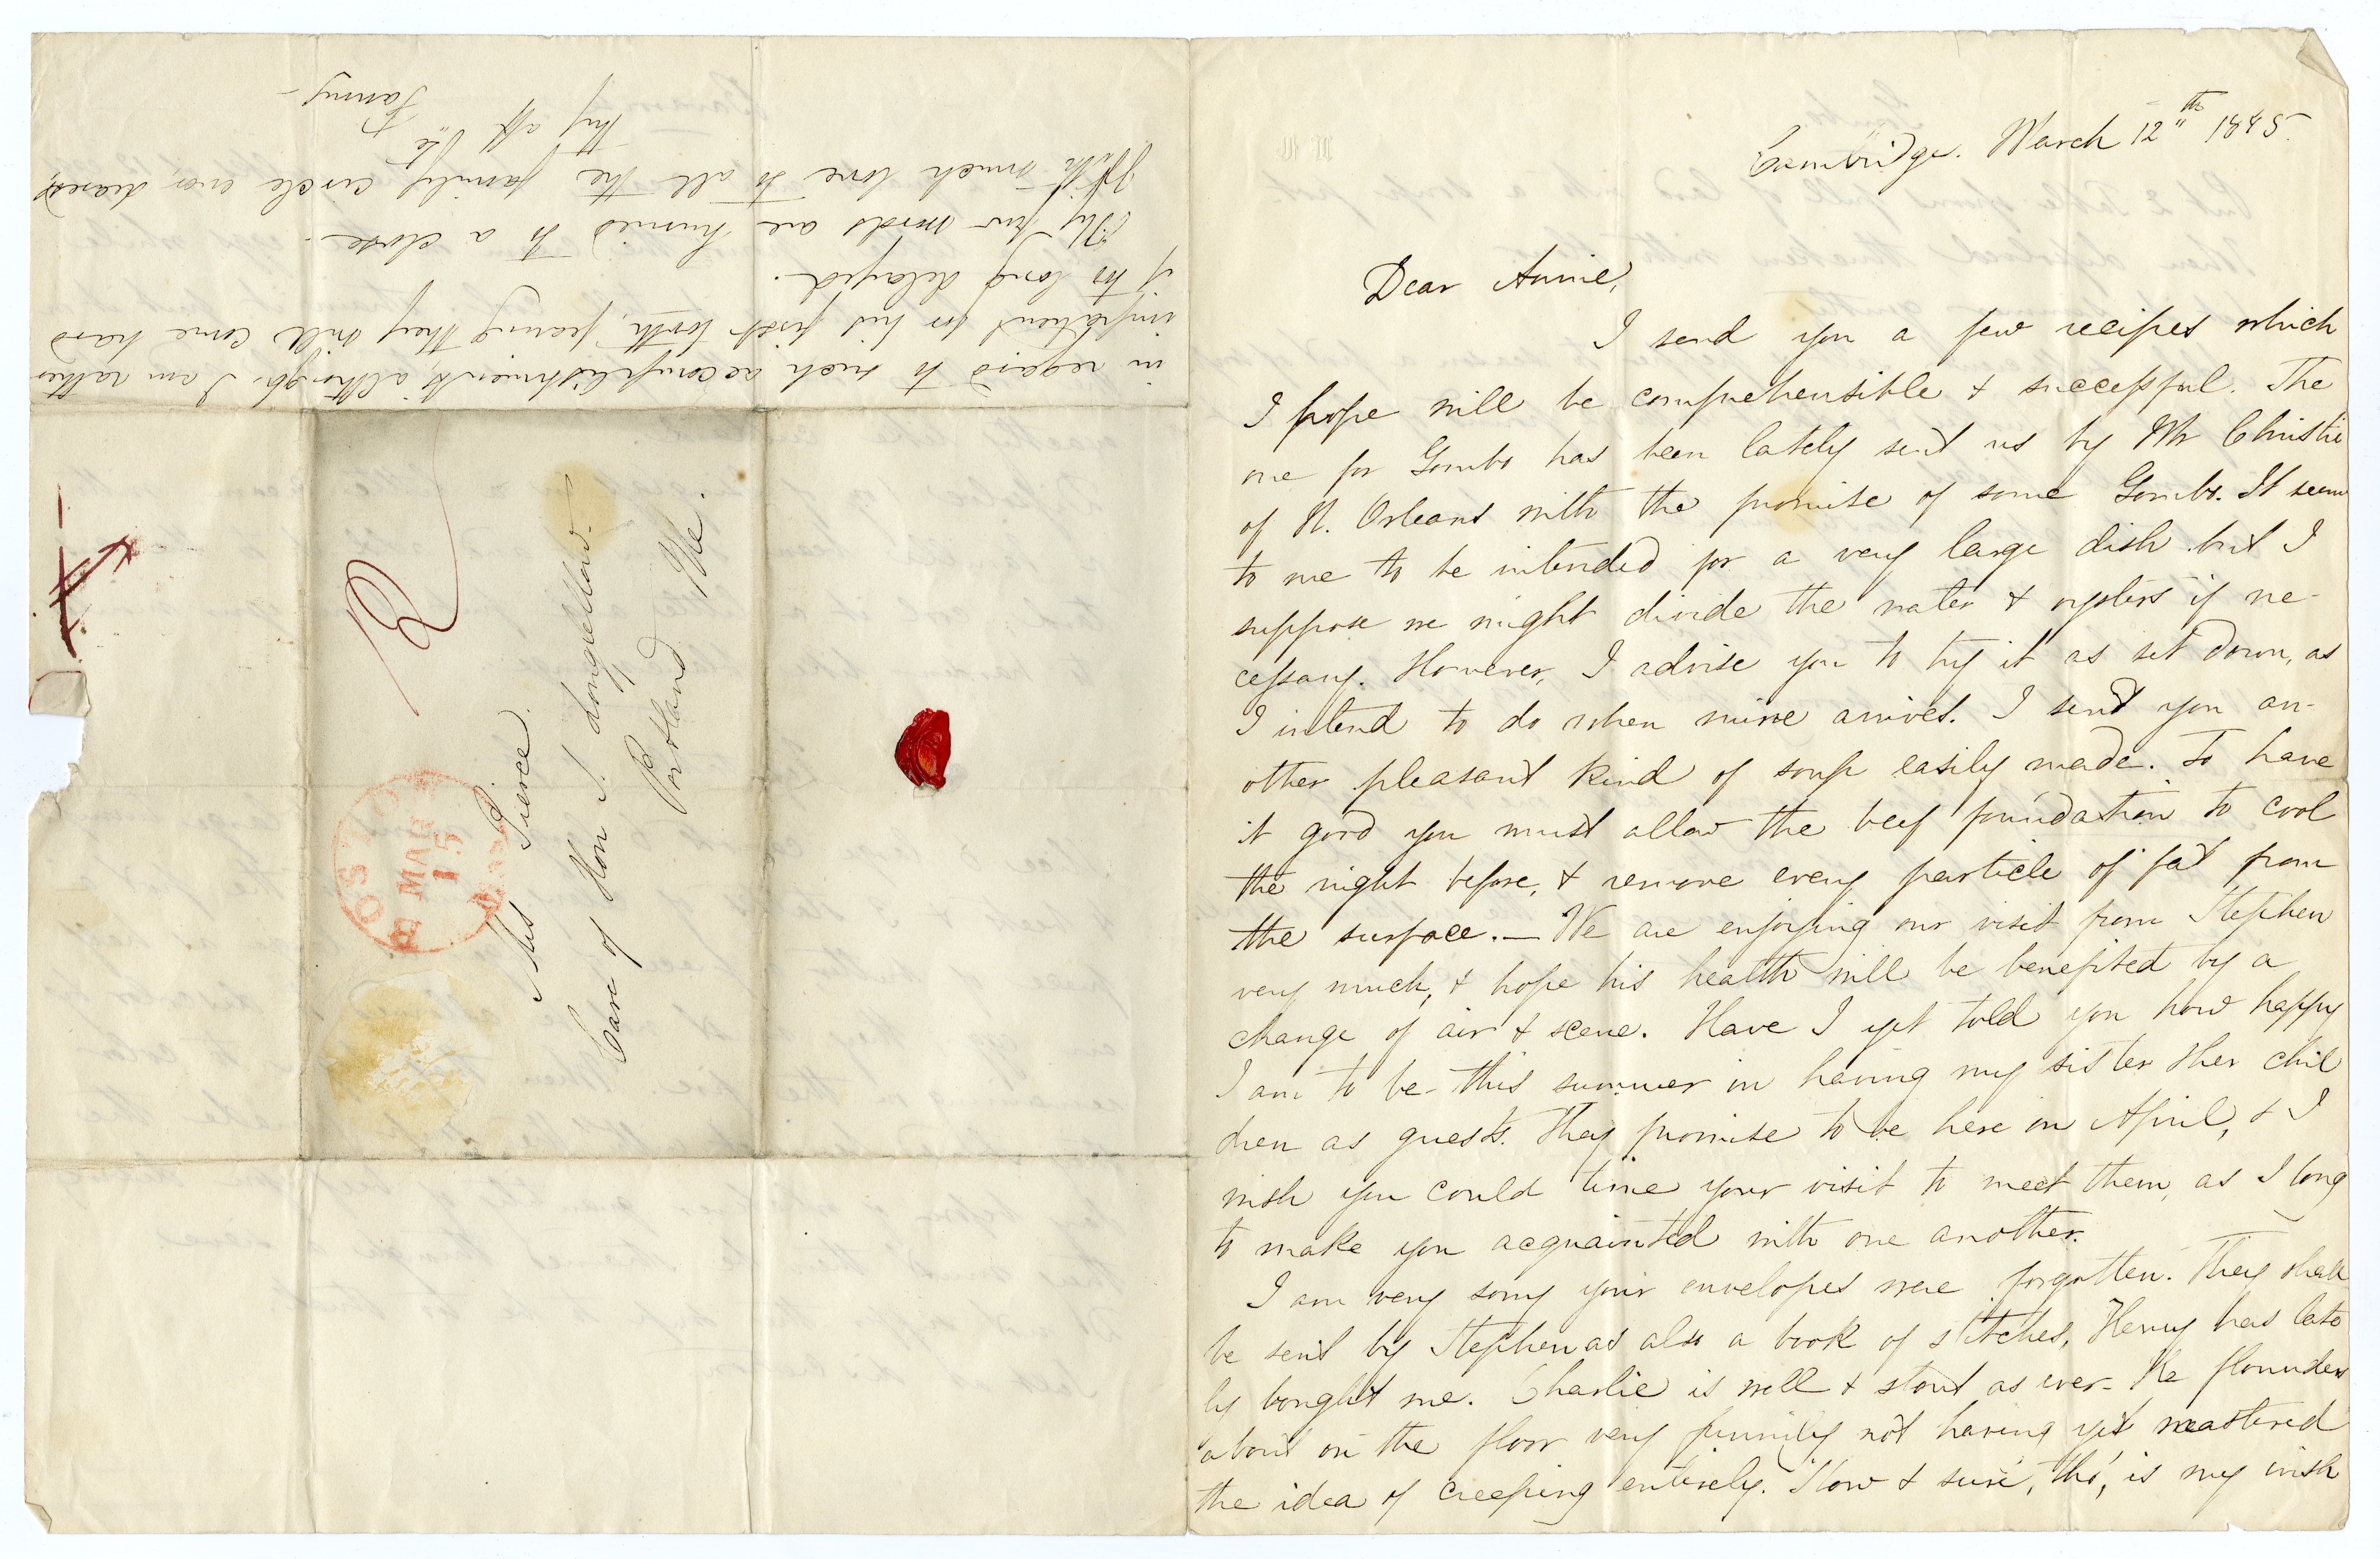 Cambridge. March 12th 1845.
Dear Annie,
I send you a few recipes which
I hope will be comprehensible & successful. The
one for Gombo has been lately sent us by Mr Christie
of N. Orleans with the promise of some Gombo. It seems
to me to be intended for a very large dish but I
suppose we might divide the water & oysters if ne-
cessary. However, I advise you to try it as set down, as
I intend to do when mine arrives. I send you an-
other pleasant kind of soup easily made. To have
it good you must allow the beef foundation to cool
the night before, & remove every particle of fat from
the surface. — We are enjoying our visit from Stephen
very much, & hope his health will be benefited by a
change of air & scene. Have I yet told you how happy
I am to be this summer in having my sister & her chil
dren as guests. They promise to be here in April, & I
wish you could time your visit to meet them, as I long
to make you acquainted with one another.
I am very sorry your envelopes were forgotten. They shall
be sent by Stephen as also a book of stitches, Henry has late
ly bought me. Charlie is well & stout as ever. He flounders
about on the floor very funnily not having yet mastered
the idea of creeping entirely. Slow & sure, tho', is my wish
in regard to such accomplishments, although I am rather
impatient for his first tooth, fearing they will come hard
if too long delayed.
My few words are hurried to a close.
With much love to all the family circle ever, dearest,
Thy aff
Fanny
12
Mrs Pierce.
Care of Hon S. Longfellow.
Portland Me.
BOSTON
MAR
15